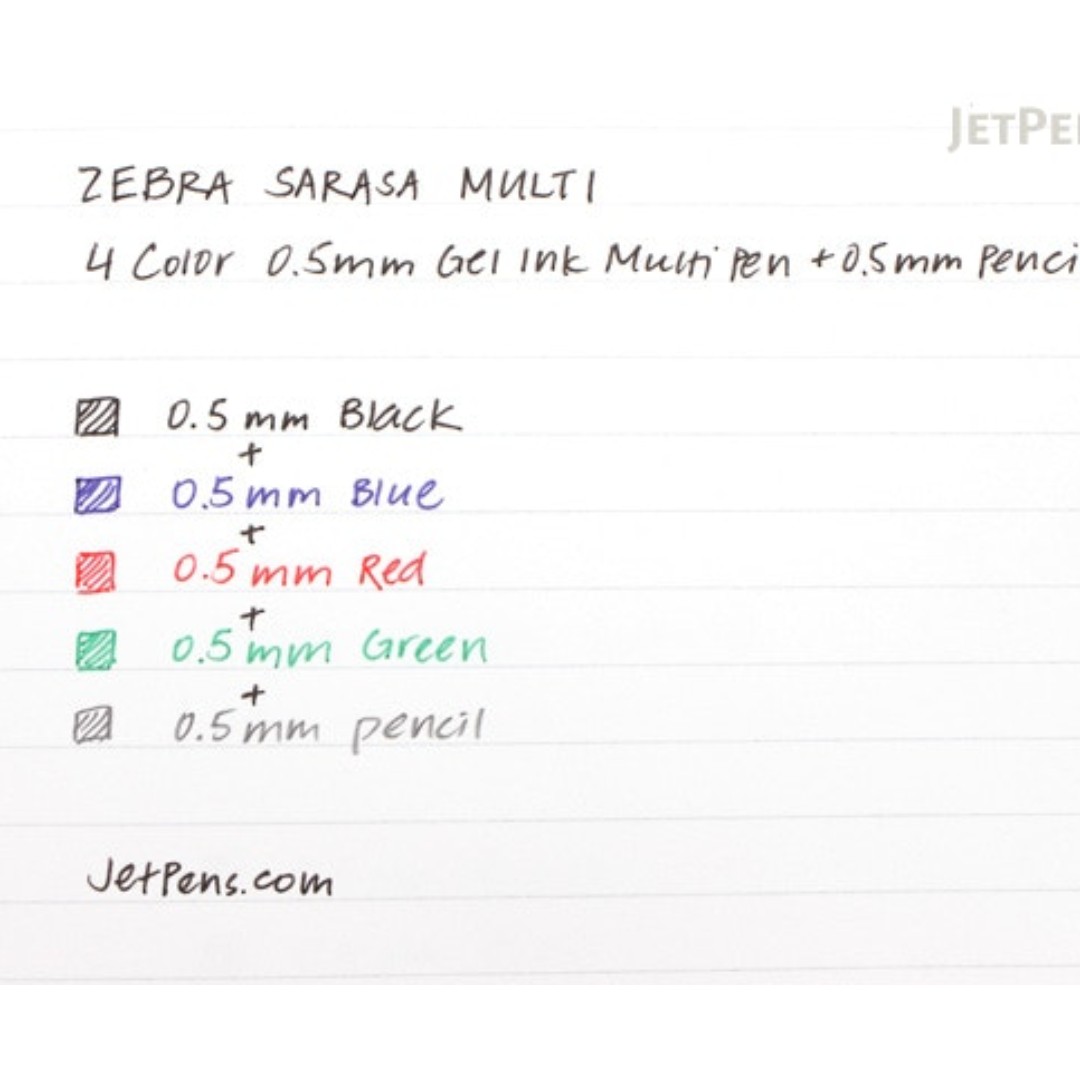 JETPE
ZEBRA SARASA MULTI
4 Color 0.5mm Gel Ink Multi Pen + 0.5mm Penci
0.5 mm Black
+
0.5 mm Blue
+
0.5 mm Red
+
0.5 mm Green
+
0.5 mm pencil
JetPens.com